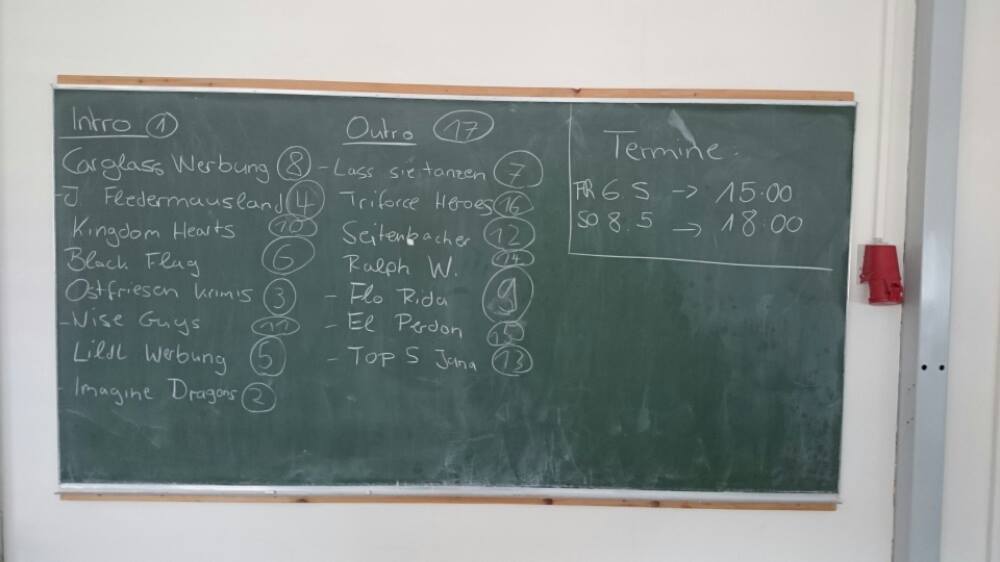 Intro 1
Carglass Werbung 8
- J. Fledermausland 4
Kingdom Hearts 10
Black Flag 6
Ostfriesen Krimis 3
- Wise Guys 11
Lildl Werbung 5
- Imagine Dragons 2
Outro 17
- Lass sie tanzen 7
Triforce Heroes 16
Seitenbacher 12
Ralph W. 14
- Flo Rida 9
- El Perdon 15
- Top 5 Jana 13
Termine:
FR 6.5 → 15:00
SO 8.5 → 18:00